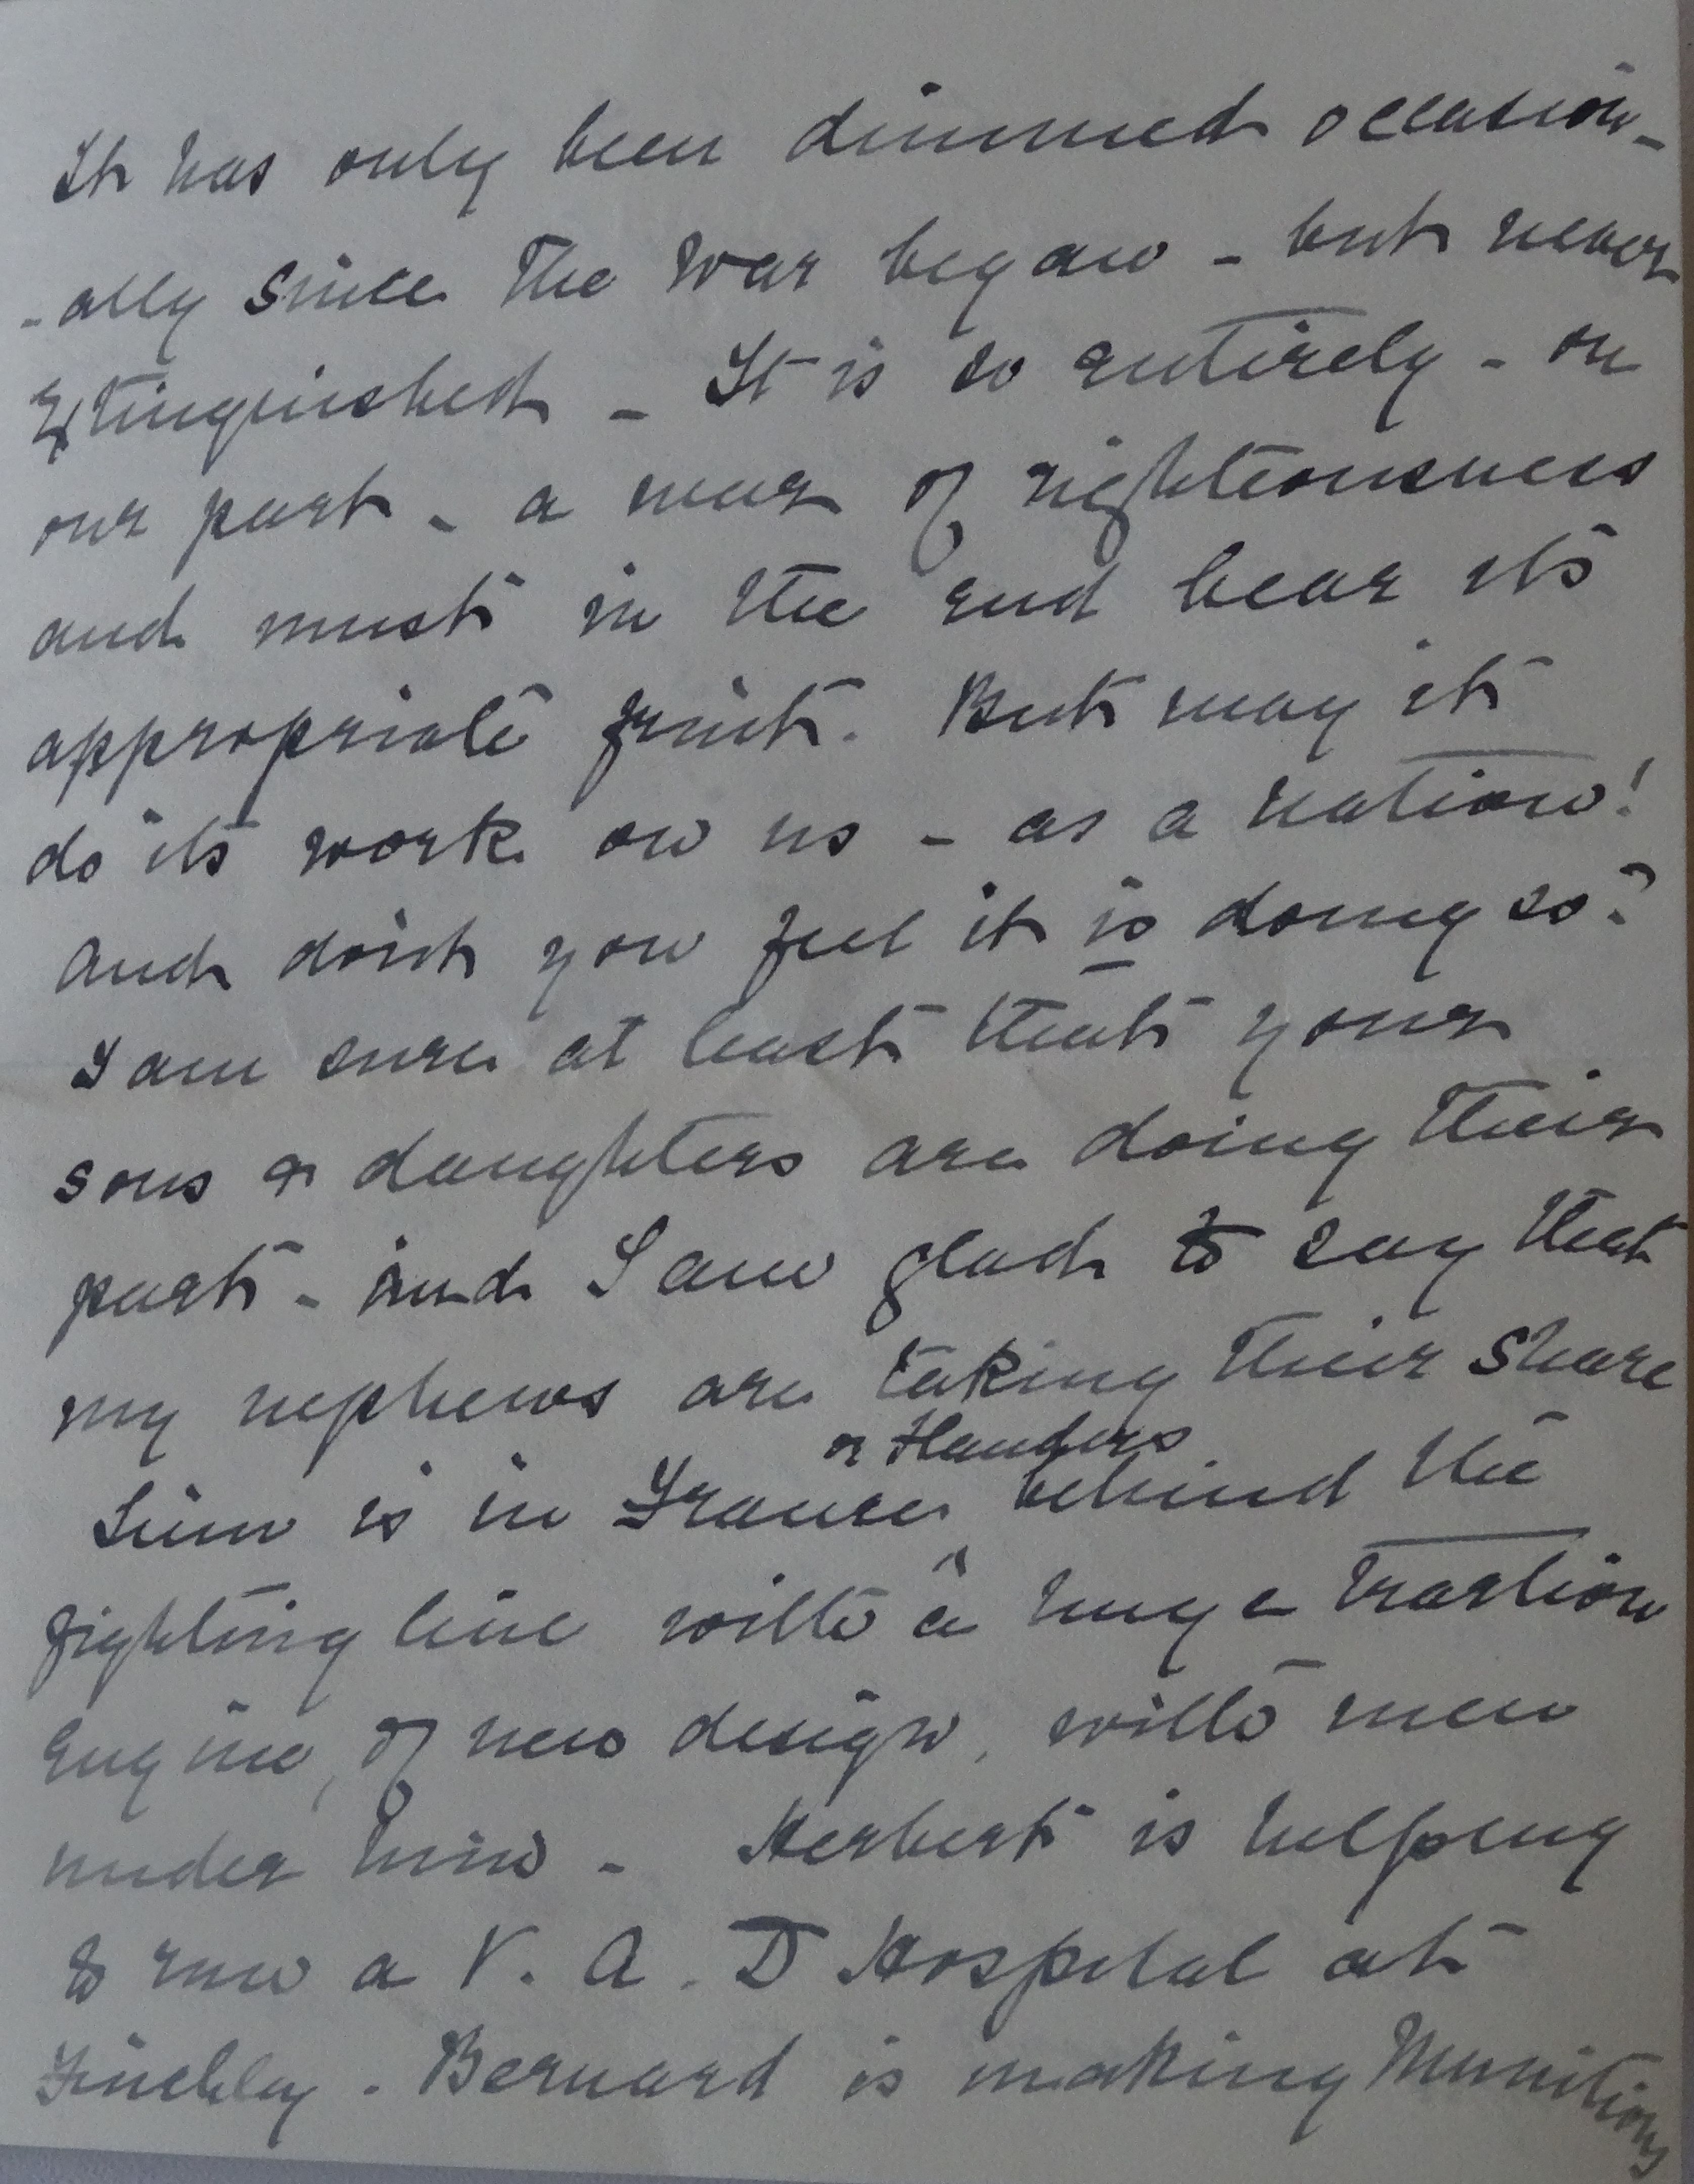 It has only been dimmed occasion-
-ally since the war began - but never
extinguished - It is so entirely - on
our part - a war of righteousness
and must in the end bear its
appropriate fruit. But may it
do its work on us - as a nation!
And don't you feel it is doing so?
I am sure at least that your
sons & daughters are doing their
part - and I am glad to say that
my nephews are taking their share
or Flanders
is in France behind the
fighting line with a huge traction
engine, of new design, with men
under him - Herbert is helping
to run a V. A. D Hospital at
Finchley. Bernard is making Munitions